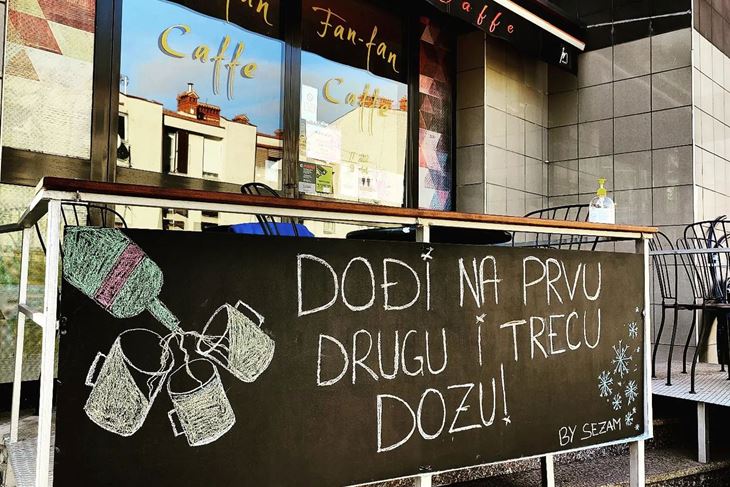 Caffe
Fan-fan
Caffe
Caffe
DOĐI NA PRVU
DRUGU I TREĆU
DOZU!
BY SEZAM